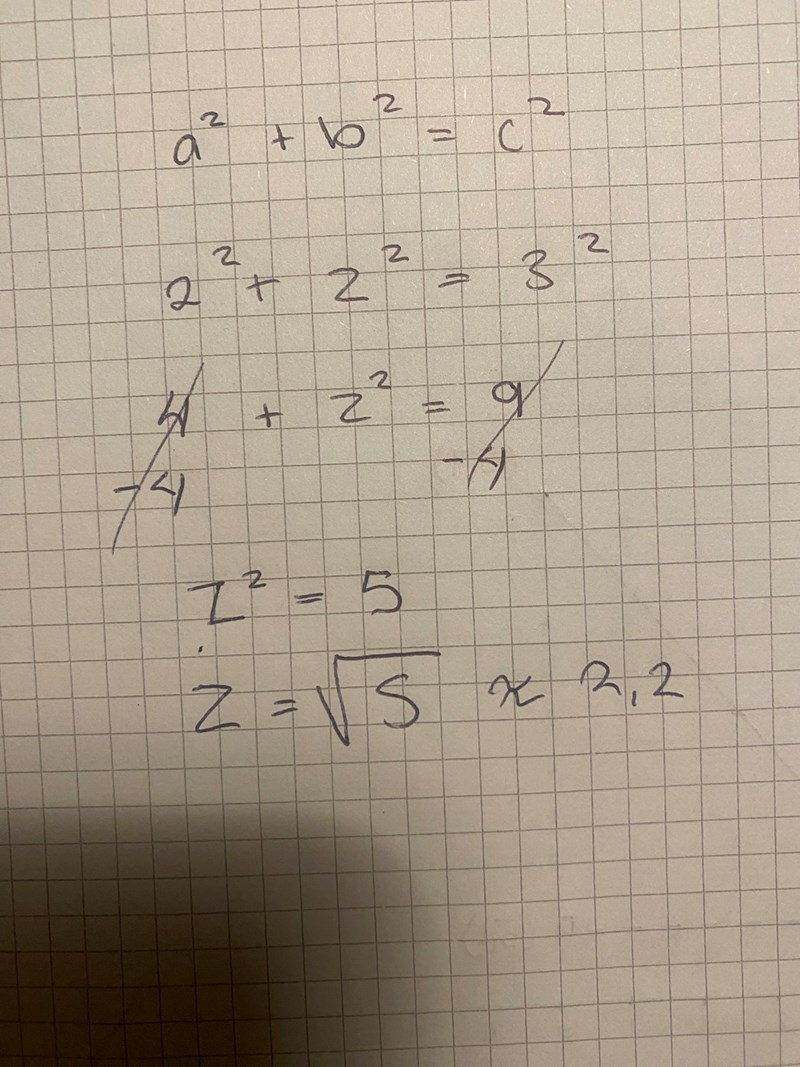 a² + b² = c²
2² + z² = 3²
4 + z² = 9
-4 -4
z² = 5
z = √5 ≈ 2,2